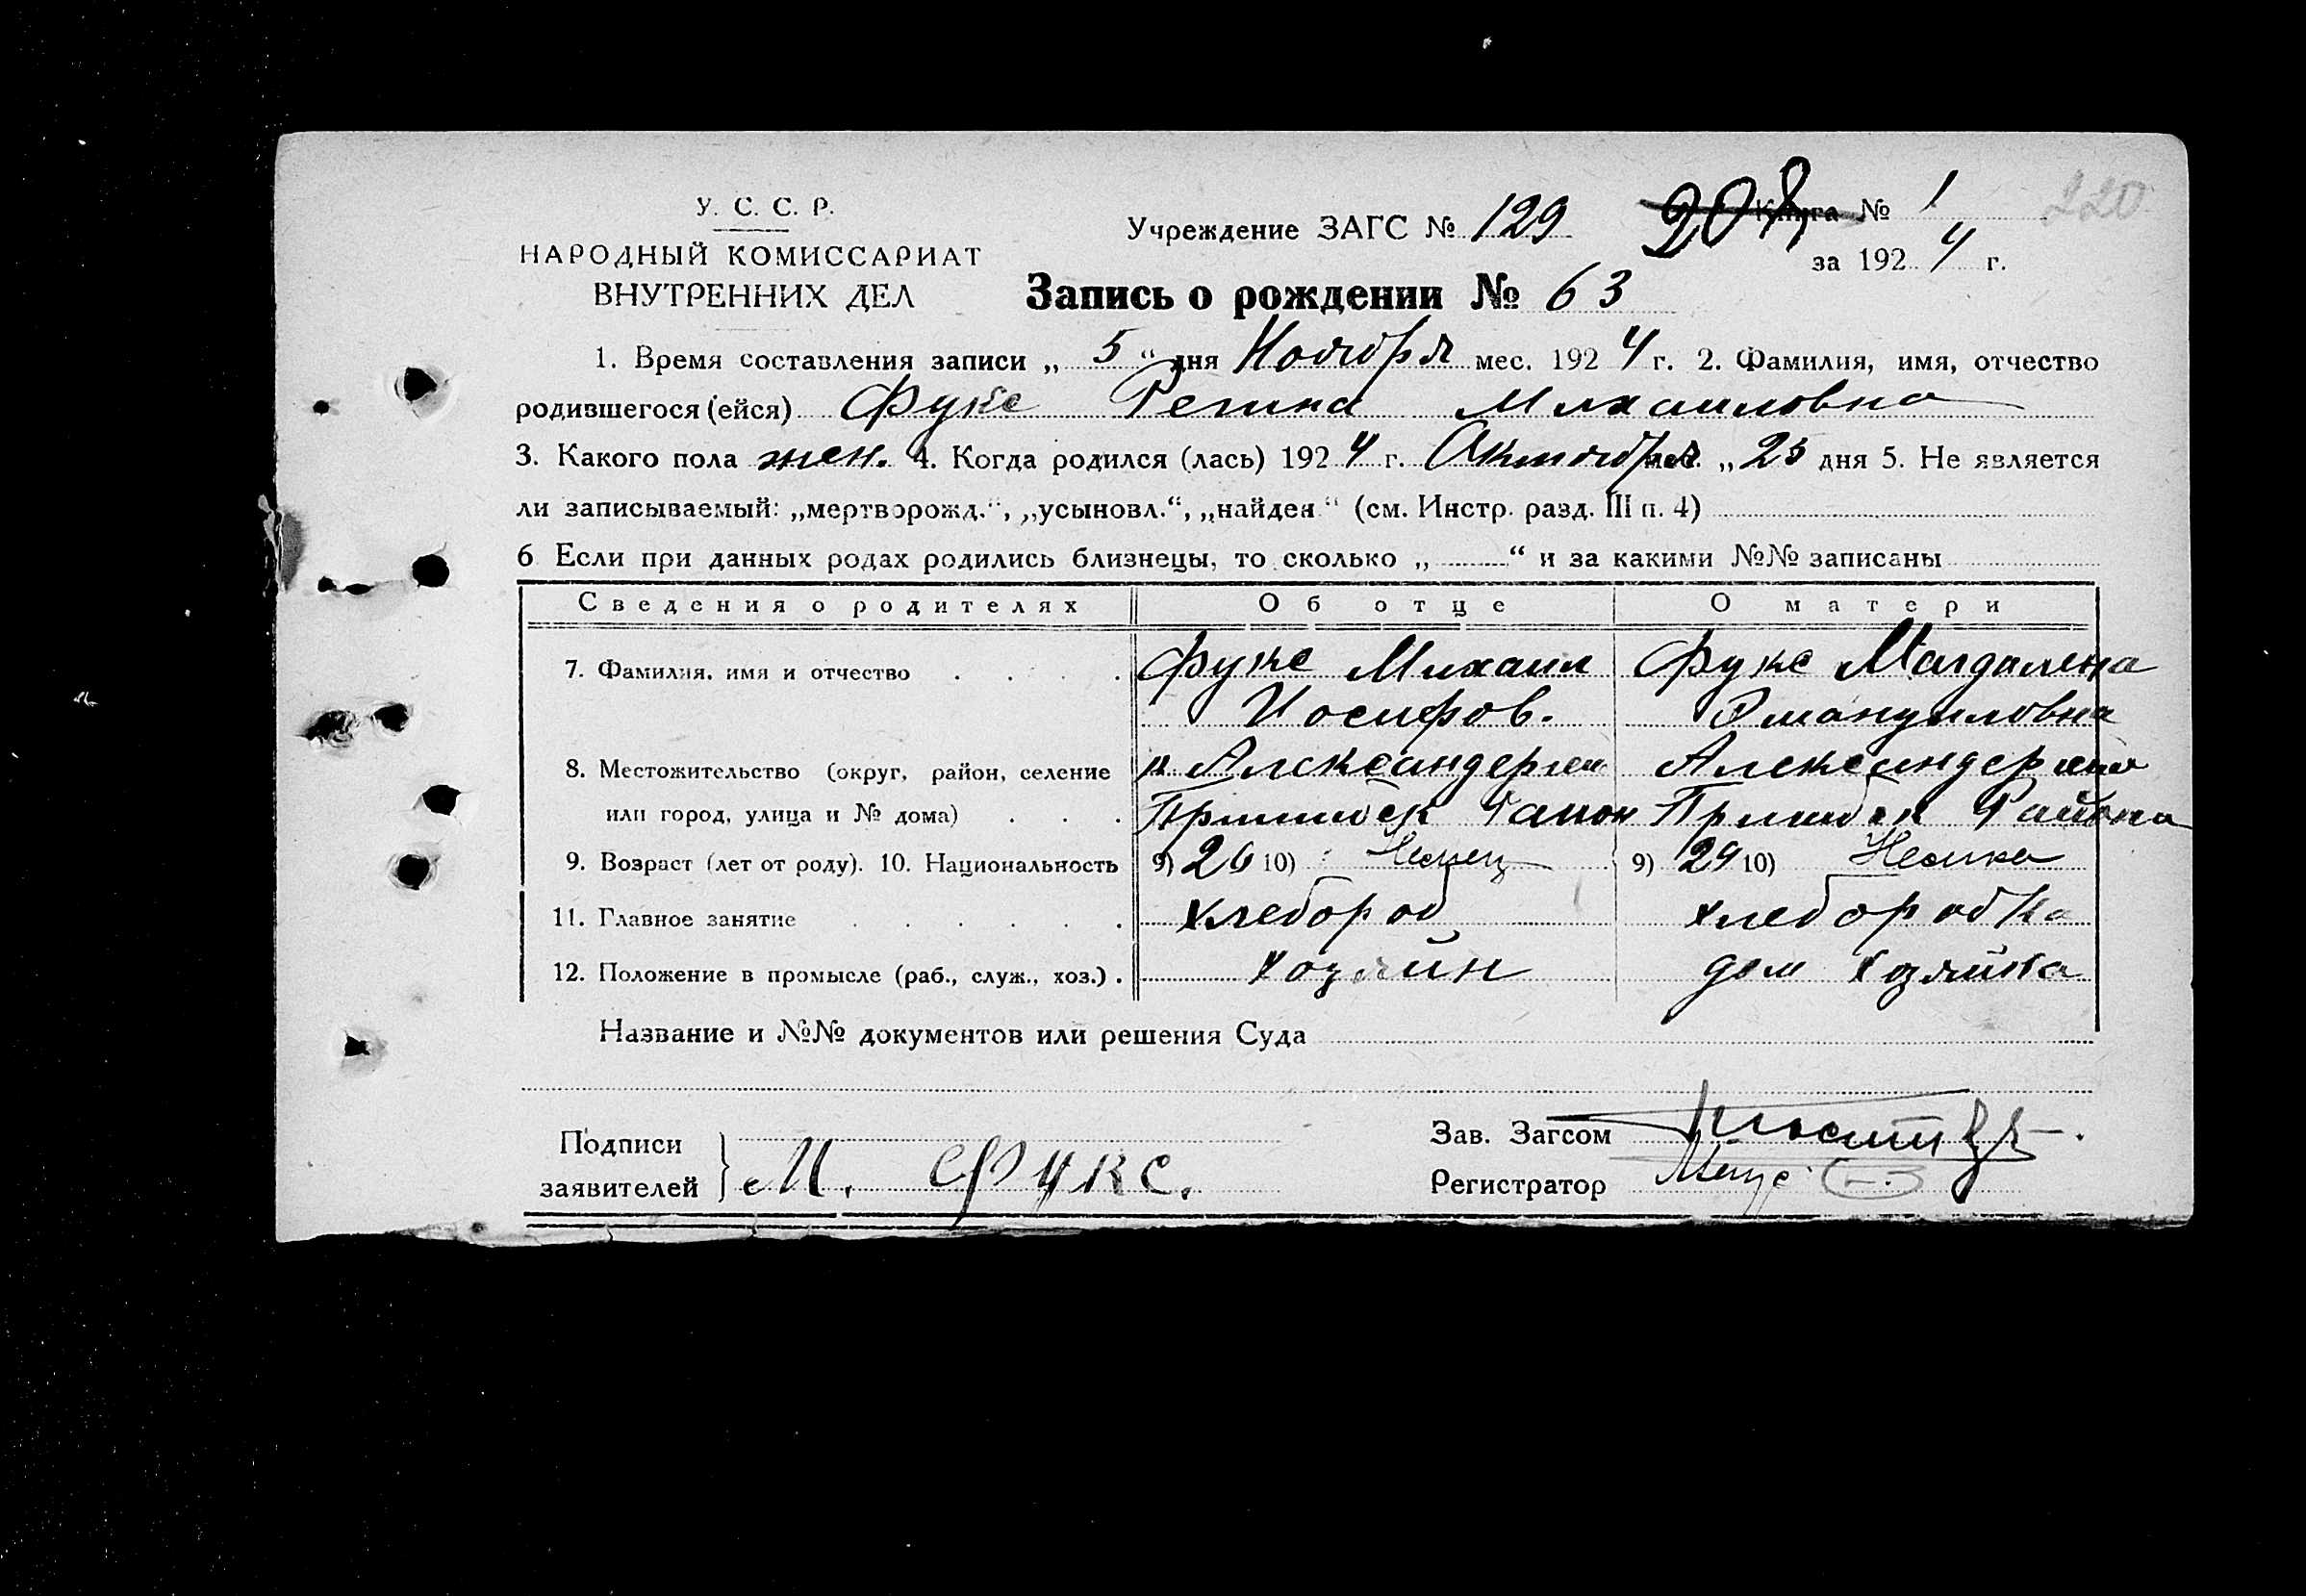 У. С. С. Р.
НАРОДНЫЙ КОМИССАРИАТ
ВНУТРЕННИХ ДЕЛ
Учреждение ЗАГС № 129
208 Книга № 1 220
за 1924 г.
Запись о рождении № 63
1. Время составления записи „ 5 “ дня Ноября мес. 1924 г. 2. Фамилия, имя, отчество
родившегося (ейся) Фукс Регина Михаиловна
3. Какого пола жен. 4. Когда родился (лась) 1924 г. Октября мес. „ 25 дня 5. Не является
ли записываемый: „мертворожд.“, „усыновл.“, „найден“ (см. Инстр. разд. III п. 4)
6 Если при данных родах родились близнецы, то сколько „ “ и за какими №№ записаны
Сведения о родителях Об отце О матери
7. Фамилия, имя и отчество Фукс Михаил Фукс Магдалена
Иосифов. Эмануиловна
8. Местожительство (округ, район, селение Александергейм Александергейм
или город, улица и № дома) Пришибск Район Пришибск Района
9. Возраст (лет от роду). 10. Национальность 9) 26 10) Немец 9) 24 10) Немка
11. Главное занятие хлебороб хлеборобка
12. Положение в промысле (раб., служ., хоз.) хозяйн дом хозяйка
Название и №№ документов или решения Суда
Подписи
заявителей } М. Фукс.
Зав. Загсом
Регистратор